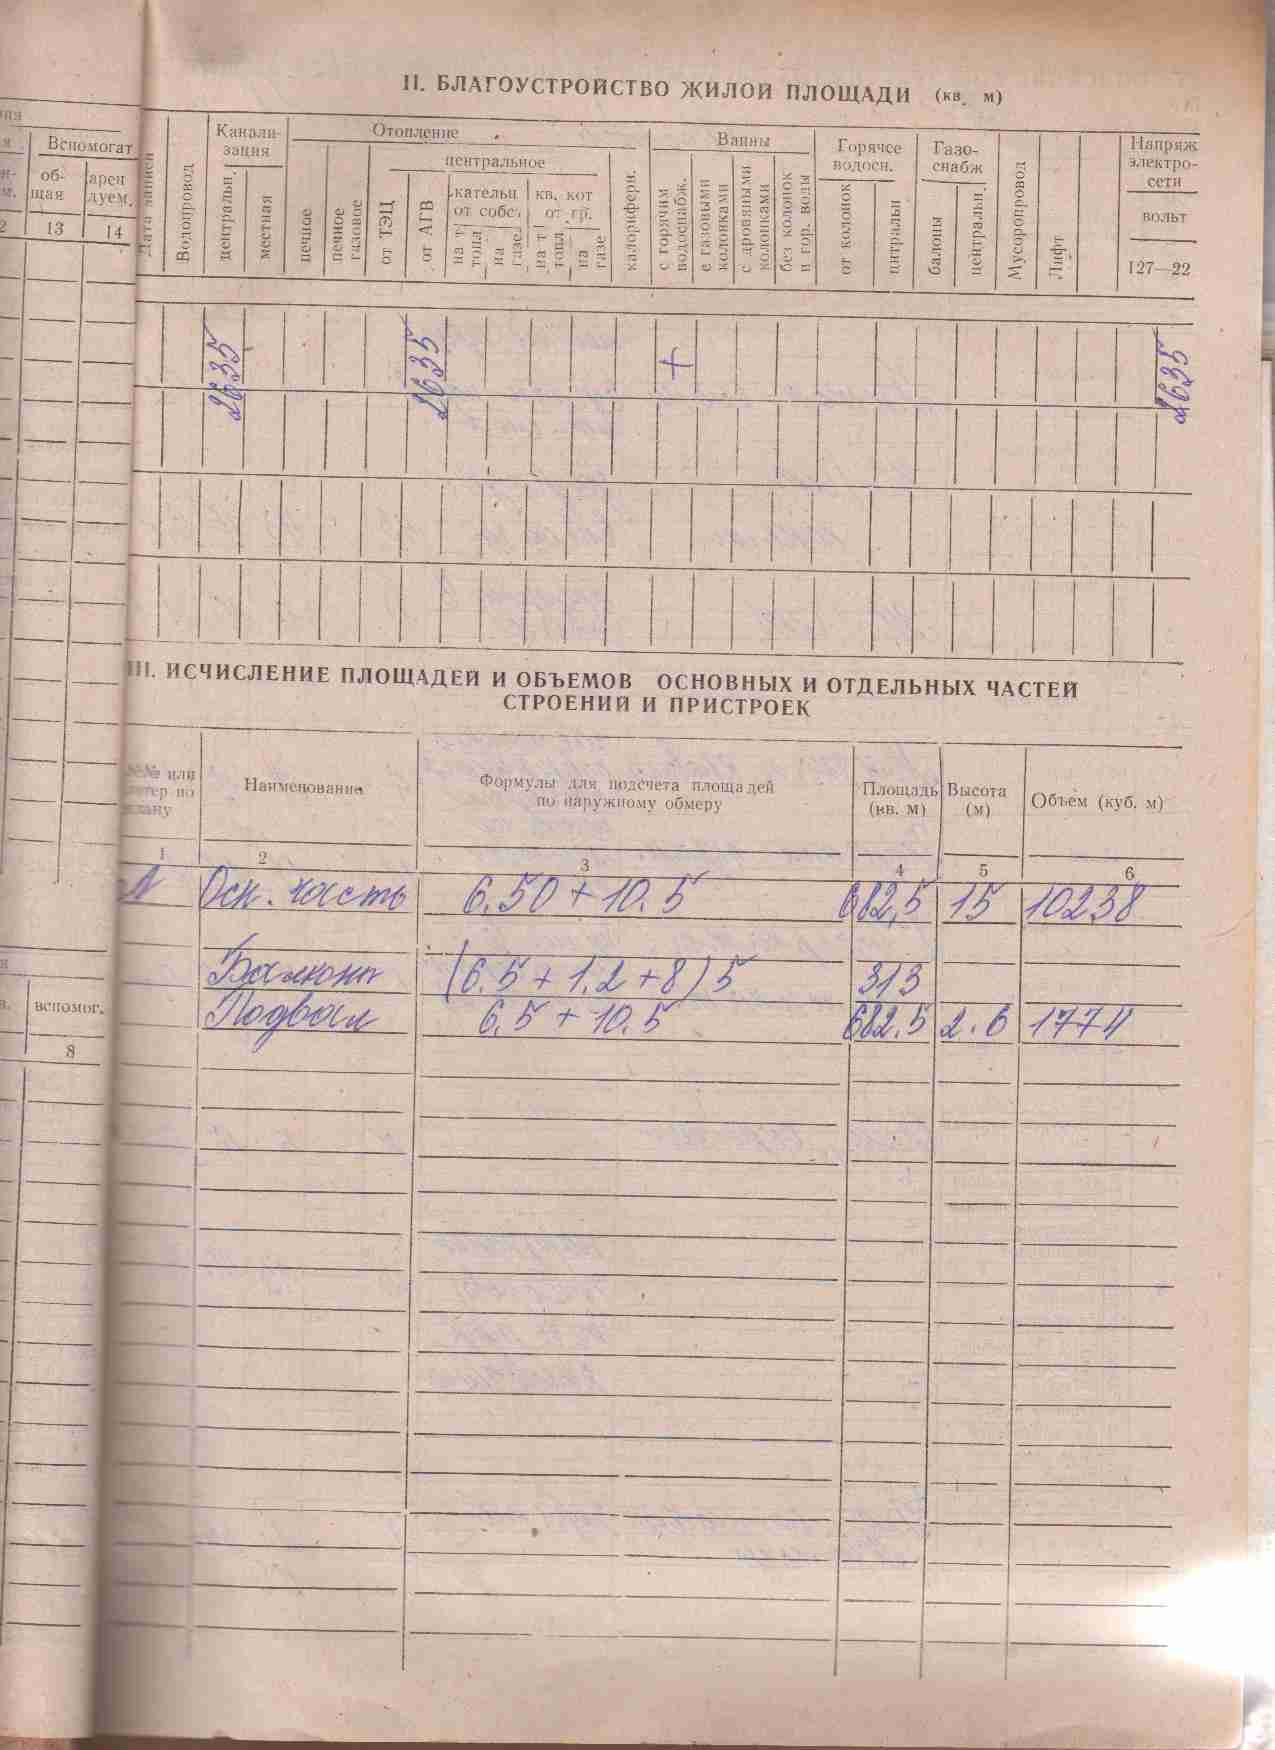 II. БЛАГОУСТРОЙСТВО ЖИЛОЙ ПЛОЩАДИ (кв. м)
Вспомогат
об-
щая
арен
дуем.
13
14
Дата записи
Водопровод
Канали-
зация
центральн.
местная
Отопление
печное
печное
газовое
центральное
от ТЭЦ
от АГВ
кательн
от собс.
на т
топл.
на
газе
кв. кот
от гр.
на т
топл.
на
газе
калорифери.
Ванны
с горячим
водоснабж.
с газовыми
колонками
с дровяными
колонками
без колонок
и гор. воды
Горячее
водосн.
от колонок
цнтральн
Газо-
снабж
балоны
центральн.
Мусоропровод
Лифт
Напряж
электро-
сети
вольт
127—22
2635
2635
+
2635
III. ИСЧИСЛЕНИЕ ПЛОЩАДЕЙ И ОБЪЕМОВ ОСНОВНЫХ И ОТДЕЛЬНЫХ ЧАСТЕЙ
СТРОЕНИЙ И ПРИСТРОЕК
№№ или
литер по
плану
Наименование
Формулы для подсчета площадей
по наружному обмеру
Площадь
(кв. м)
Высота
(м)
Объем (куб. м)
1 2 3 4 5 6
Осн. часть 6.50 + 10.5 682,5 15 10238
Балкони (6.5 + 1.2 + 8) 5 313
Подвал 6.5 + 10.5 682.5 2.6 1774
вспомог.
8